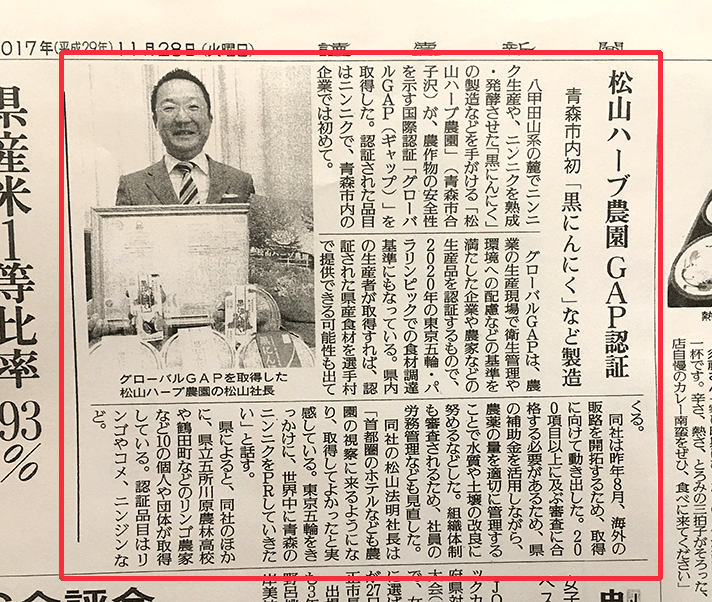 2017年(平成29年)11月28日(火曜日)
讀賣新聞
松山ハーブ農園 GAP認証
青森市内初「黒にんにく」など製造
八甲田山系の麓でニンニ
ク生産や、ニンニクを熟成
・発酵させた「黒にんにく」
の製造などを手がける「松
山ハーブ農園」(青森市合
子沢)が、農作物の安全性
を示す国際認証「グローバ
ルGAP(ギャップ)」を
取得した。認証された品目
はニンニクで、青森市内の
企業では初めて。
グローバルGAPは、農
業の生産現場で衛生管理や
環境への配慮などの基準を
満たした企業や農家などの
生産品を認証するもので、
2020年の東京五輪・パ
ラリンピックでの食材調達
基準にもなっている。県内
の生産者が取得すれば、認
証された県産食材を選手村
で提供できる可能性も出て
くる。
同社は昨年8月、海外の
販路を開拓するため、取得
に向けて動き出した。20
0項目以上に及ぶ審査に合
格する必要があるため、県
の補助金を活用しながら、
農薬の量を適切に管理する
ことで水質や土壌の改良に
努めるなどした。組織体制
も審査されるため、社員の
労務管理なども見直した。
同社の松山法明社長は
「首都圏のホテルなども農
園の視察に来るようにな
り、取得してよかったと実
感している。東京五輪をき
っかけに、世界中に青森の
ニンニクをPRしていきた
い」と話す。
県によると、同社のほか
に、県立五所川原農林高校
や鶴田町などのリンゴ農家
など10の個人や団体が取得
している。認証品目はリ
ンゴやコメ、ニンジンな
ど。
グローバルGAPを取得した
松山ハーブ農園の松山社長
県産米1等比率93%
一杯です。辛さ、熱さ、とろみの三拍子がそろった、
店自慢のカレー南蛮をぜひ、食べに来てください」